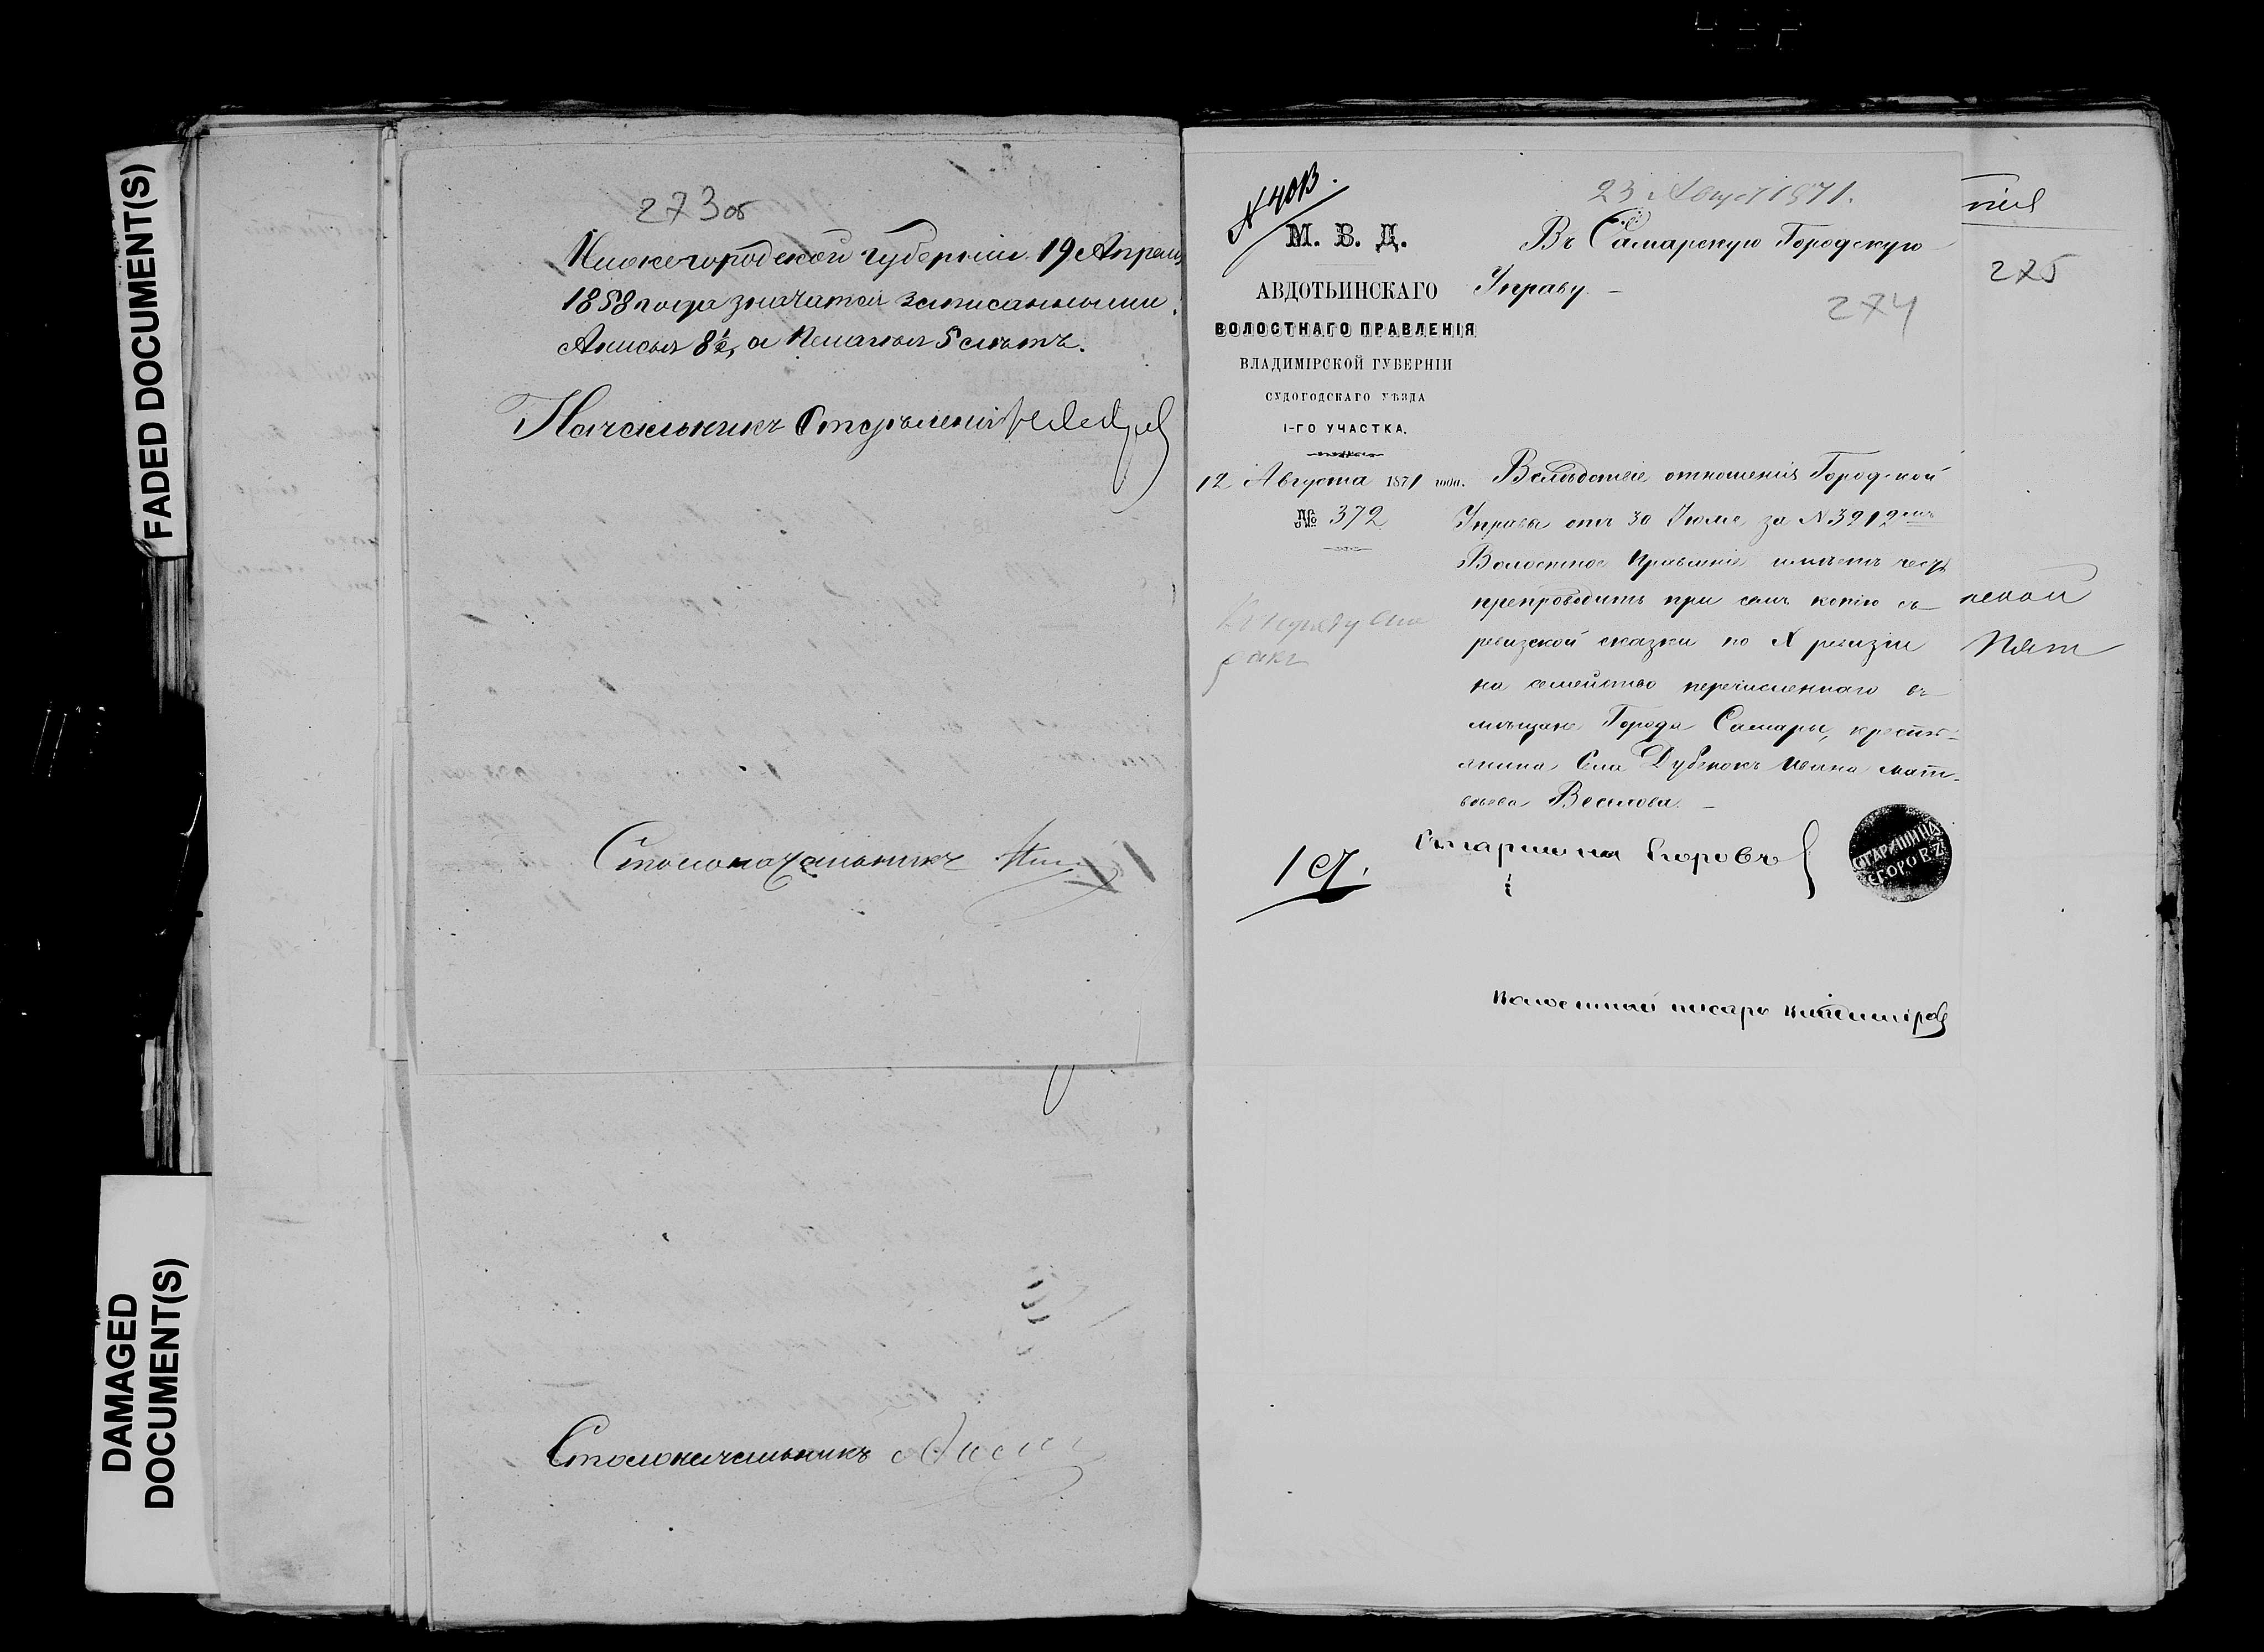 FADED DOCUMENT(S)
DAMAGED
DOCUMENT(S)
273 об
Нижегородской губернии 19 Апреля
1858 года значатся записанными:
Анисья 8½, а Пелагея 5 лѣтъ.
Начальникъ Отдѣленія
Столоначальникъ
Столоначальникъ
N 4013.
М. В. Д.
АВДОТЬИНСКАГО
ВОЛОСТНАГО ПРАВЛЕНІЯ
ВЛАДИМІРСКОЙ ГУБЕРНІИ
СУДОГОДСКАГО УѢЗДА
1-ГО УЧАСТКА.
12 Августа 1871 года.
№ 372
23 Август 1871.
Въ Самарскую Городскую
Управу. –
274
Вслѣдствіе отношенія Городской
Управы отъ 30 Іюля за N 3212
Волостное Правленіе имѣетъ честь
препроводить при семъ копію съ
ревизской сказки по X ревизіи
на семейство перечисленнаго въ
мѣщане Города Самары, крестья-
нина Села Дубенокъ Ивана Мат-
вѣева Веселова. –
Старшина Егоровъ
СТАРШИНА
ЕГОРОВЪ
Волостной писарь Владиміров
275